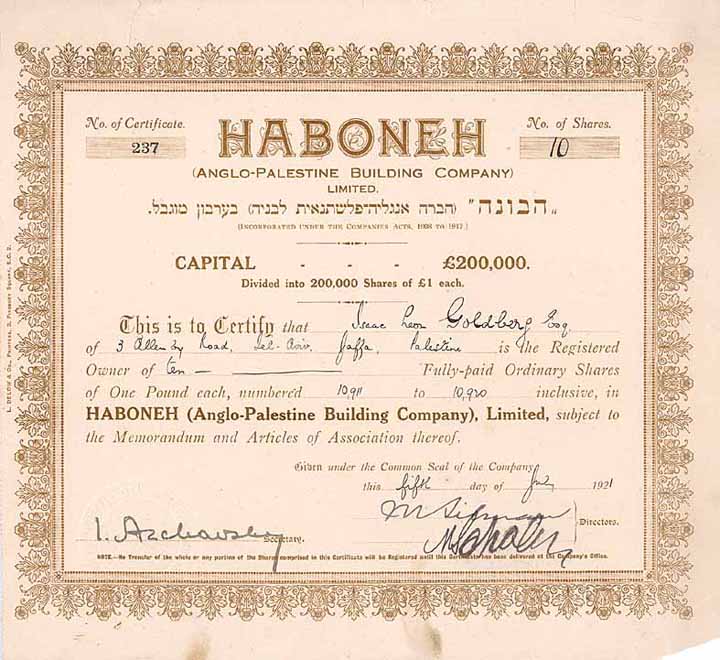 No. of Certificate.
237
HABONEH
No. of Shares.
10
(ANGLO-PALESTINE BUILDING COMPANY)
LIMITED.
„הבונה" (חברה אנגליה־פלשתנאית לבניה) בערבון מוגבל.
(INCORPORATED UNDER THE COMPANIES ACTS, 1908 TO 1917.)
CAPITAL - - - £200,000.
Divided into 200,000 Shares of £1 each.
This is to Certify that Isaac Leon Goldberg Esq.
of 3 Allenby Road, Tel-Aviv, Jaffa, Palestine is the Registered
Owner of ten — Fully-paid Ordinary Shares
of One Pound each, number'd 10,911 to 10,920 inclusive, in
HABONEH (Anglo-Palestine Building Company), Limited, subject to
the Memorandum and Articles of Association thereof.
Given under the Common Seal of the Company
this fifth day of July 1921
Directors.
Secretary.
NOTE.—No Transfer of the whole or any portion of the Shares comprised in this Certificate will be Registered until this Certificate has been delivered at the Company's Office.